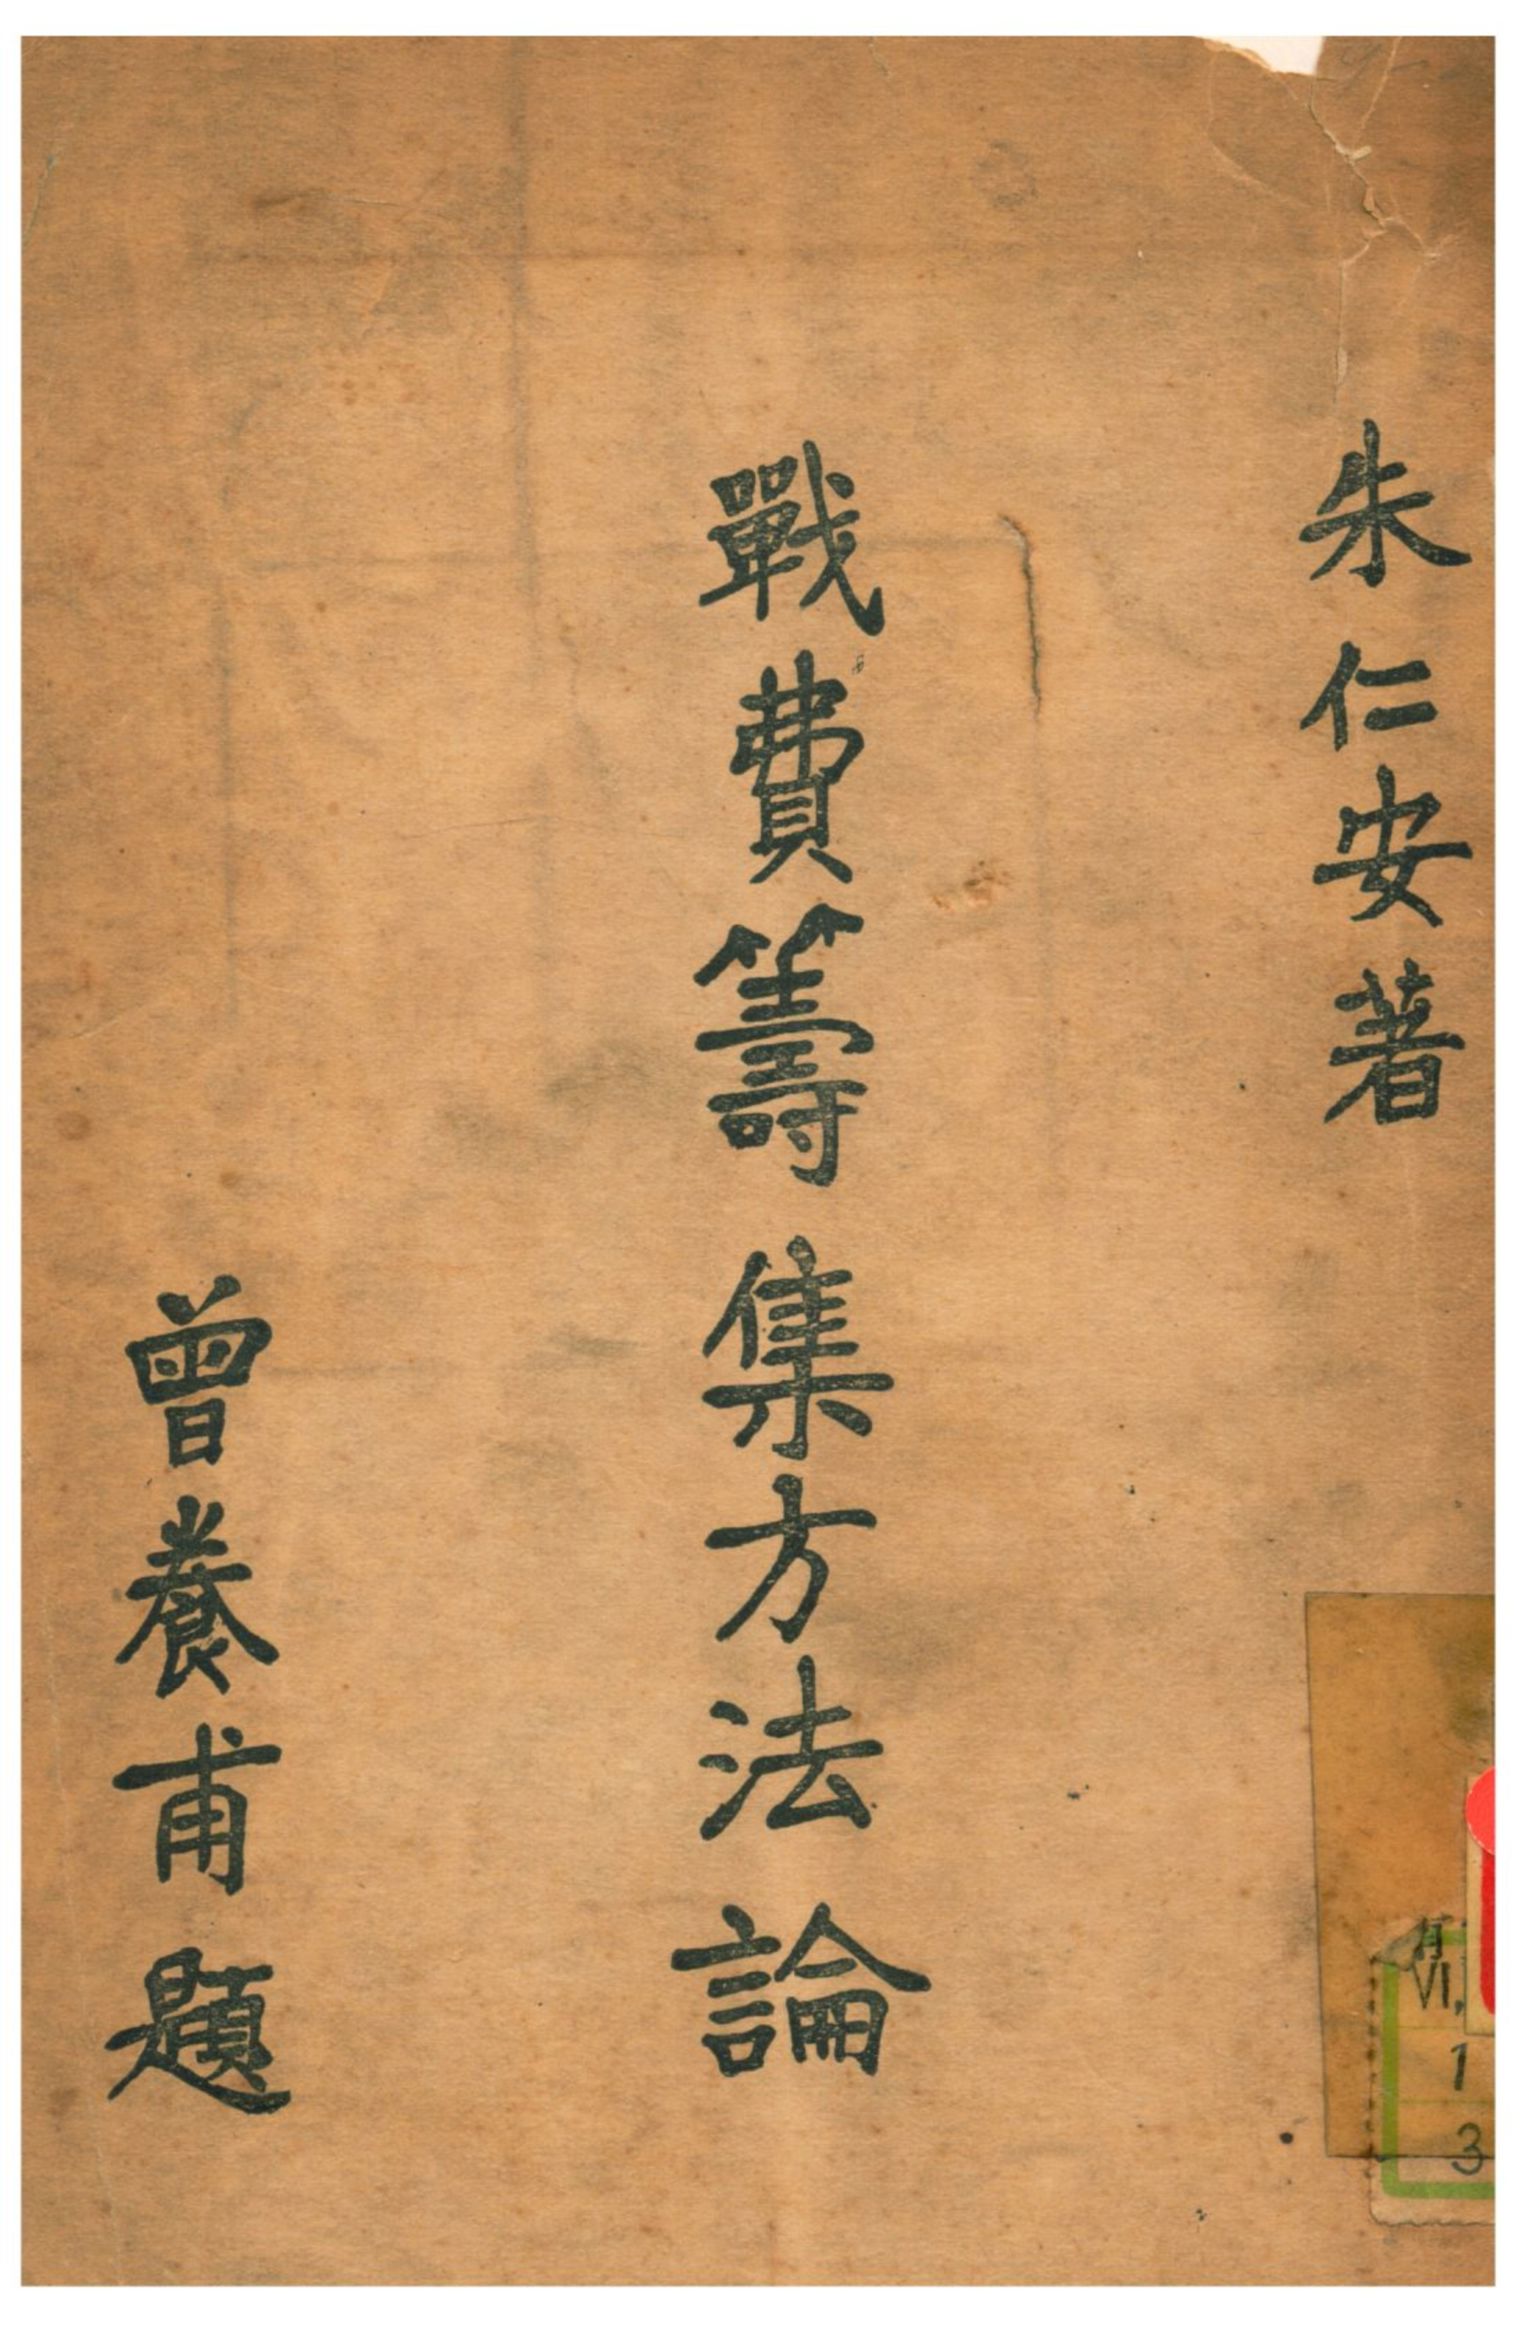 朱仁安著
戰費籌集方法論
曾養甫題
VI,
1
3